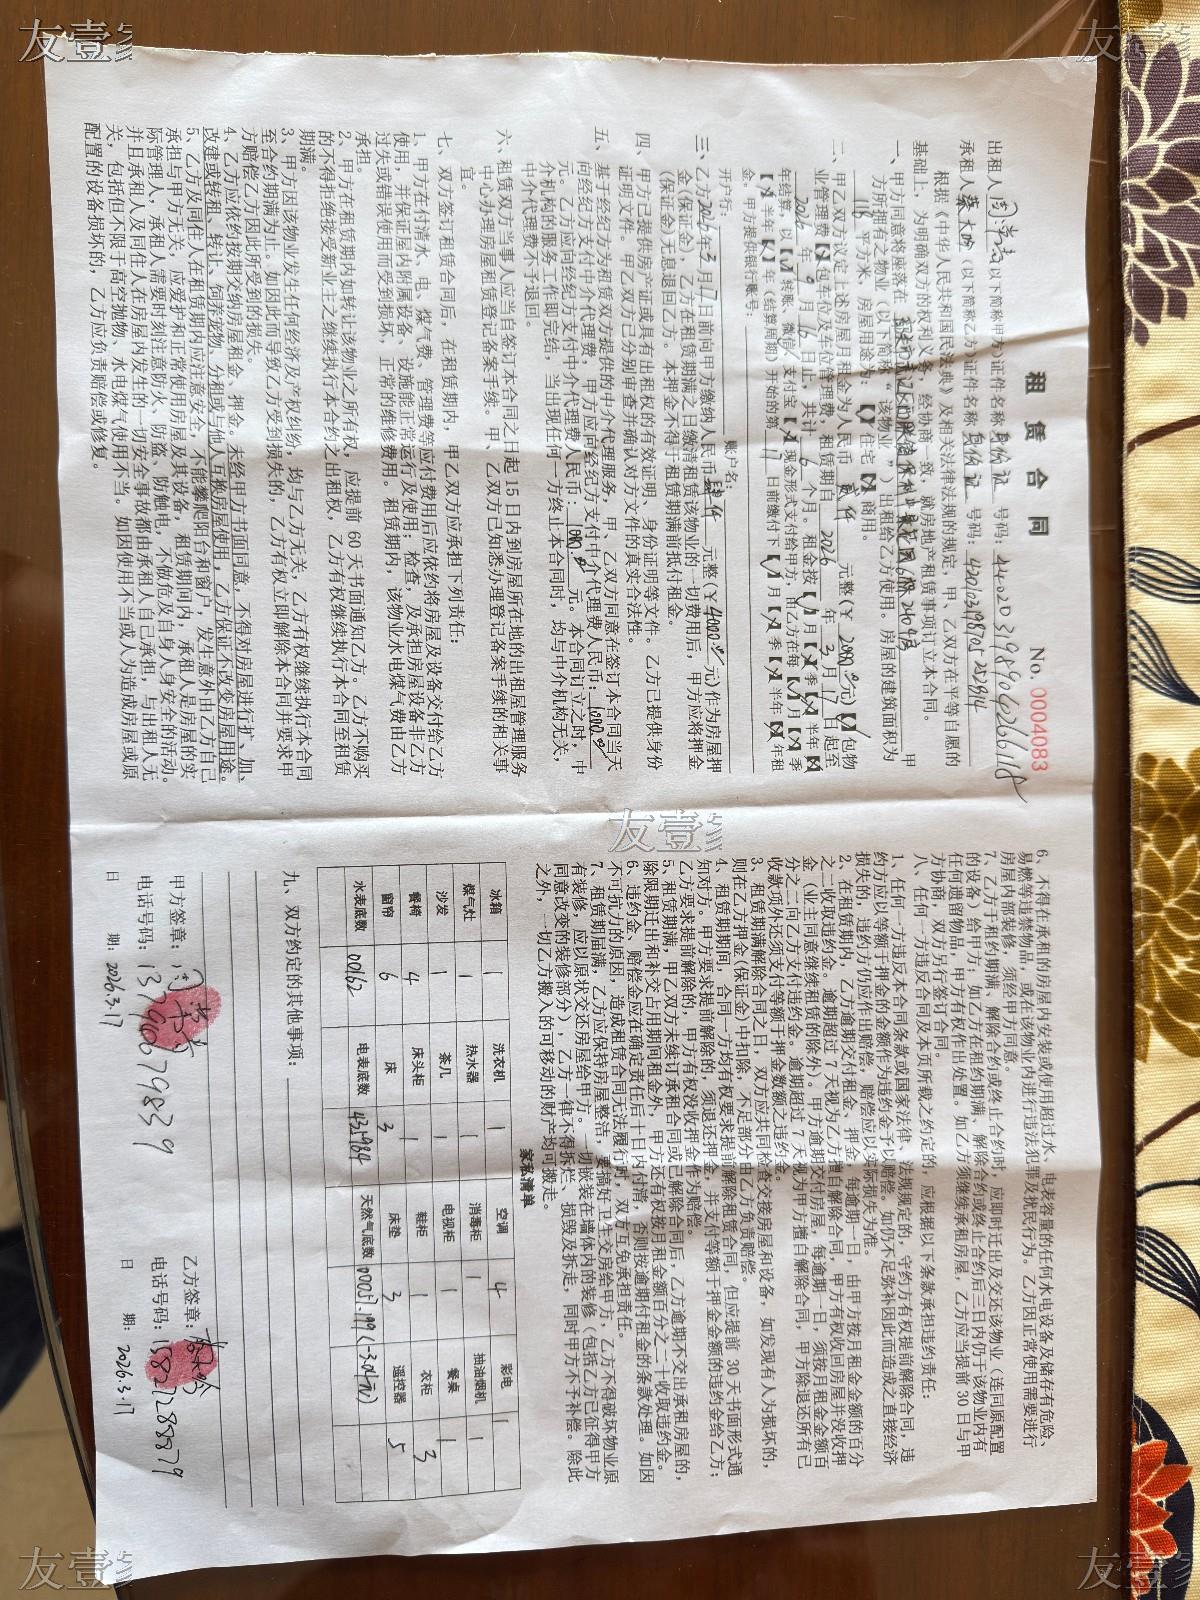 租赁合同 No. 0004083
出租人 (以下简称甲方)证件名称 身份证 号码: 440203198906266118
承租人 (以下简称乙方)证件名称 身份证 号码:
根据《中华人民共和国民法典》及相关法律法规的规定，甲、乙双方在平等自愿的
基础上，为明确双方的权利义务，经协商一致，就房地产租赁事项订立本合同。
一、甲方同意将座落在 甲
方所拥有之物业（以下简称“该物业”）出租给乙方使用。房屋的建筑面积为
118 平方米，房屋用途为:【√】住宅【×】商用。
二、甲乙双方议定上述房屋月租金为人民币 贰仟 元整(￥2000元)【×】包物
业管理费【×】包车位及车位管理费，租赁期自 2026 年 3 月 17 日起至
2026 年 9 月 16 日止，共计 6 个月。租金按【√】月【×】季【×】半年【×】
年结算，以【√】转账、微信/支付宝【×】现金形式支付给甲方，由乙方在每【√】月【×】季
【×】半年【×】年(结算周期)开始的第 17 日前缴付下【√】月【×】季【×】半年【×】年租
金。甲方提供银行账号:
开户行: 账户名:
三、乙方2026年3月17日前向甲方缴纳人民币 肆仟 元整(￥4000元)作为房屋押
金(保证金)，乙方在租赁期满之日缴清租赁该物业的一切费用后，甲方应将押金
(保证金)无息退回乙方。本押金不得于租赁期满前抵付租金。
四、甲方已提供房产证或具有出租权的有效证明、身份证明等文件。乙方已提供身份
证明文件。甲乙双方已分别审查并确认对方文件的真实合法性。
五、基于经纪方为租赁双方提供的中介代理服务，甲、乙双方同意在签订本合同当天
向经纪方支付中介代理费，甲方应向经纪方支付中介代理费人民币: 1000.
元。乙方应向经纪方支付中介代理费人民币: 1000. 元。本合同订立之时，中
介机构的服务工作即完结，当出现任何一方终止本合同时，均与中介机构无关，
中介代理费不予退回。
六、租赁双方当事人应当自签订本合同之日起 15 日内到房屋所在地的出租屋管理服务
中心办理房屋租赁登记备案手续。甲、乙双方已知悉办理登记备案手续的相关事
宜。
七、双方签订租赁合同后，在租赁期内，甲乙双方应承担下列责任:
1、甲方在付清水、电、煤气费、管理费等应付费用后应依约将房屋及设备交付给乙方
使用，并保证屋内附属设备、设施能正常运行及使用；检查，及承担房屋设备非乙方
过失或错误使用而受到损坏，正常的维修费用。租赁期内，该物业水电煤气费由乙方
承担。
2、甲方在租赁期内如转让该物业之所有权，应提前 60 天书面通知乙方。乙方不购买
的不得拒绝接受新业主之继续执行本合约之出租权，乙方有权继续执行本合同至租赁
期满。
3、甲方因该物业发生任何经济及产权纠纷，均与乙方无关，乙方有权继续执行本合同
至合约期满为止。如因此而导致乙方受到损失的，乙方有权立即解除本合同并要求甲
方赔偿乙方因此所受到的损失。
4、乙方应依约按期交纳房屋租金、押金。未经甲方书面同意，不得对房屋进行扩、加、
改建或转租、转让、饲养宠物、分租或与他人互换房屋使用，乙方保证不改变房屋用途。
5、乙方及同住人在租赁期内应注意安全，不能攀爬阳台和窗户，发生意外由乙方自己
承担与甲方无关，应爱护和正常使用房屋及其设备，租赁期间内，承租人是房屋的实
际管理人，承租人需要时刻注意防火、防盗、防触电，不做危及自身人身安全的活动。
并且承租人及同住人在房屋内发生的一切安全事故都由承租人自己承担，与出租人无
关，包括但不限于高空抛物、水电煤气使用不当。如因使用不当或人为造成房屋或原
配置的设备损坏的，乙方应负责赔偿或修复。
6、不得在承租的房屋内安装或使用超过水、电表容量的任何水电设备及储存有危险、
易燃等违禁物品，或在该物业内进行违法犯罪及扰民行为。乙方因正常使用需要进行
房屋内部装修，须经甲方同意。
7、乙方于租约期满、解除合约或终止合约时，应即时迁出及交还该物业（连同原配置
的设备）给甲方；如乙方在租约期满、解除合约或终止合约后三日内仍于该物业内有
任何遗留物品，甲方有权作出处置。如乙方须继续承租房屋，乙方应当提前 30 日与甲
方协商，双方另行签订合同。
八、任何一方违反合同及本页所载之约定的，应根据以下条款承担违约责任:
1、任何一方违反本合同条款或国家法律、法规规定的，守约方有权提前解除合同，违
约方应以等额于押金的金额作为违约金予以赔偿。如仍不足弥补因此而造成之直接经济
损失的，违约方仍应作出赔偿，赔偿应以实际损失为准。
2、在租赁期内，乙方逾期交付租金、押金，每逾期一日，由甲方按月租金金额的百分
之二收取违约金，逾期超过 7 天视为乙方擅自解除合同，甲方有权收回房屋并没收押
金（业主同意继续租赁的除外）。甲方逾期交付房屋，每逾期一日，须按月租金金额百
分之二向乙方支付违约金。逾期超过 7 天视为甲方擅自解除合同，甲方除退还所有已
收款项外还须支付等额于押金数额之违约金。
3、租赁期满解除合同之日，双方应共同检查交接房屋和设备，如发现有人为损坏的，
则在乙方押金(保证金)中扣除，不足部分由乙方负责赔偿。
4、租赁期期间，合同一方均有权要求提前解除租赁合同，但应提前 30 天书面形式通
知对方。甲方要求提前解除的，须退还押金，并支付等额于押金金额的违约金给乙方；
乙方要求提前解除的，甲方有权没收押金作为赔偿。
5、租赁期满，甲乙双方未续订承租合同或已解除合同后，乙方逾期不交出承租房屋的，
除限期迁出和补交占用期间租金外，甲方还有权按月租金额百分之二十收取违约金。
6、违约金、赔偿金应在确定责任后十日内付清，否则按逾期付租金的条款处理。如因
不可抗力的原因，造成租赁合同无法履行时，双互互免承担责任。
7、租赁期届满，乙方应保持房屋整洁，要搞好卫生交房给甲方，乙方不得破坏物业原
有装修，应以原状交还房屋给甲方。一切嵌装在墙体内的装修（包括乙方已征得甲方
同意改变的装修部分），乙方一律不得拆烂、损毁及拆走，同时甲方不予补偿。除此
之外，一切乙方搬入的可移动的财产均可搬走。
家私清单
冰箱 1 洗衣机 1 空调 4 彩电 1
煤气灶 1 热水器 1 消毒柜 1 抽油烟机 1
沙发 1 茶几 1 电视柜 1 餐桌 1
餐椅 4 床头柜 1 鞋柜 1 衣柜 3
窗帘 6 床 3 床垫 3 遥控器 5
水表底数 00162 电表底数 天然气底数
九、双方约定的其他事项:
甲方签章: 乙方签章:
电话号码: 13790679839 电话号码: 15827288879
日 期: 2026.3.17 日 期: 2026.3.17
友壹家
友壹家
友壹家
友壹家
友壹家